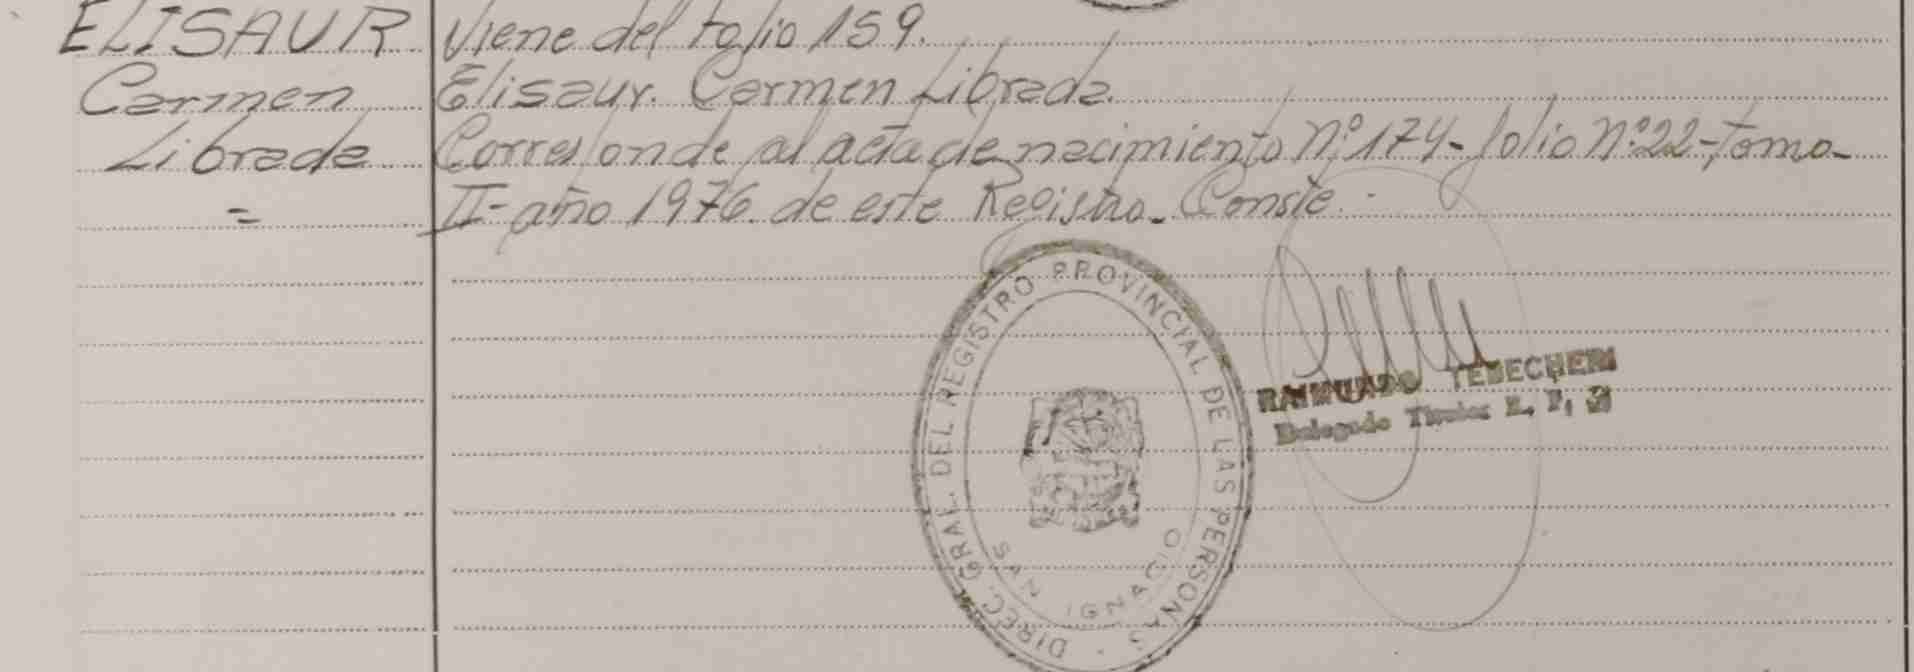 ELISAUR
Carmen
Librada
=
Viene del folio 159.
Elisaur. Carmen Librada.
Corresponde al acta de nacimiento Nº 174 - folio Nº 22 - tomo -
II - año 1976. de este Registro. Conste. -
DIREC. GRAL. DEL REGISTRO PROVINCIAL DE LAS PERSONAS
SAN IGNACIO
RAIMUNDO
Delegado Titular R. P.